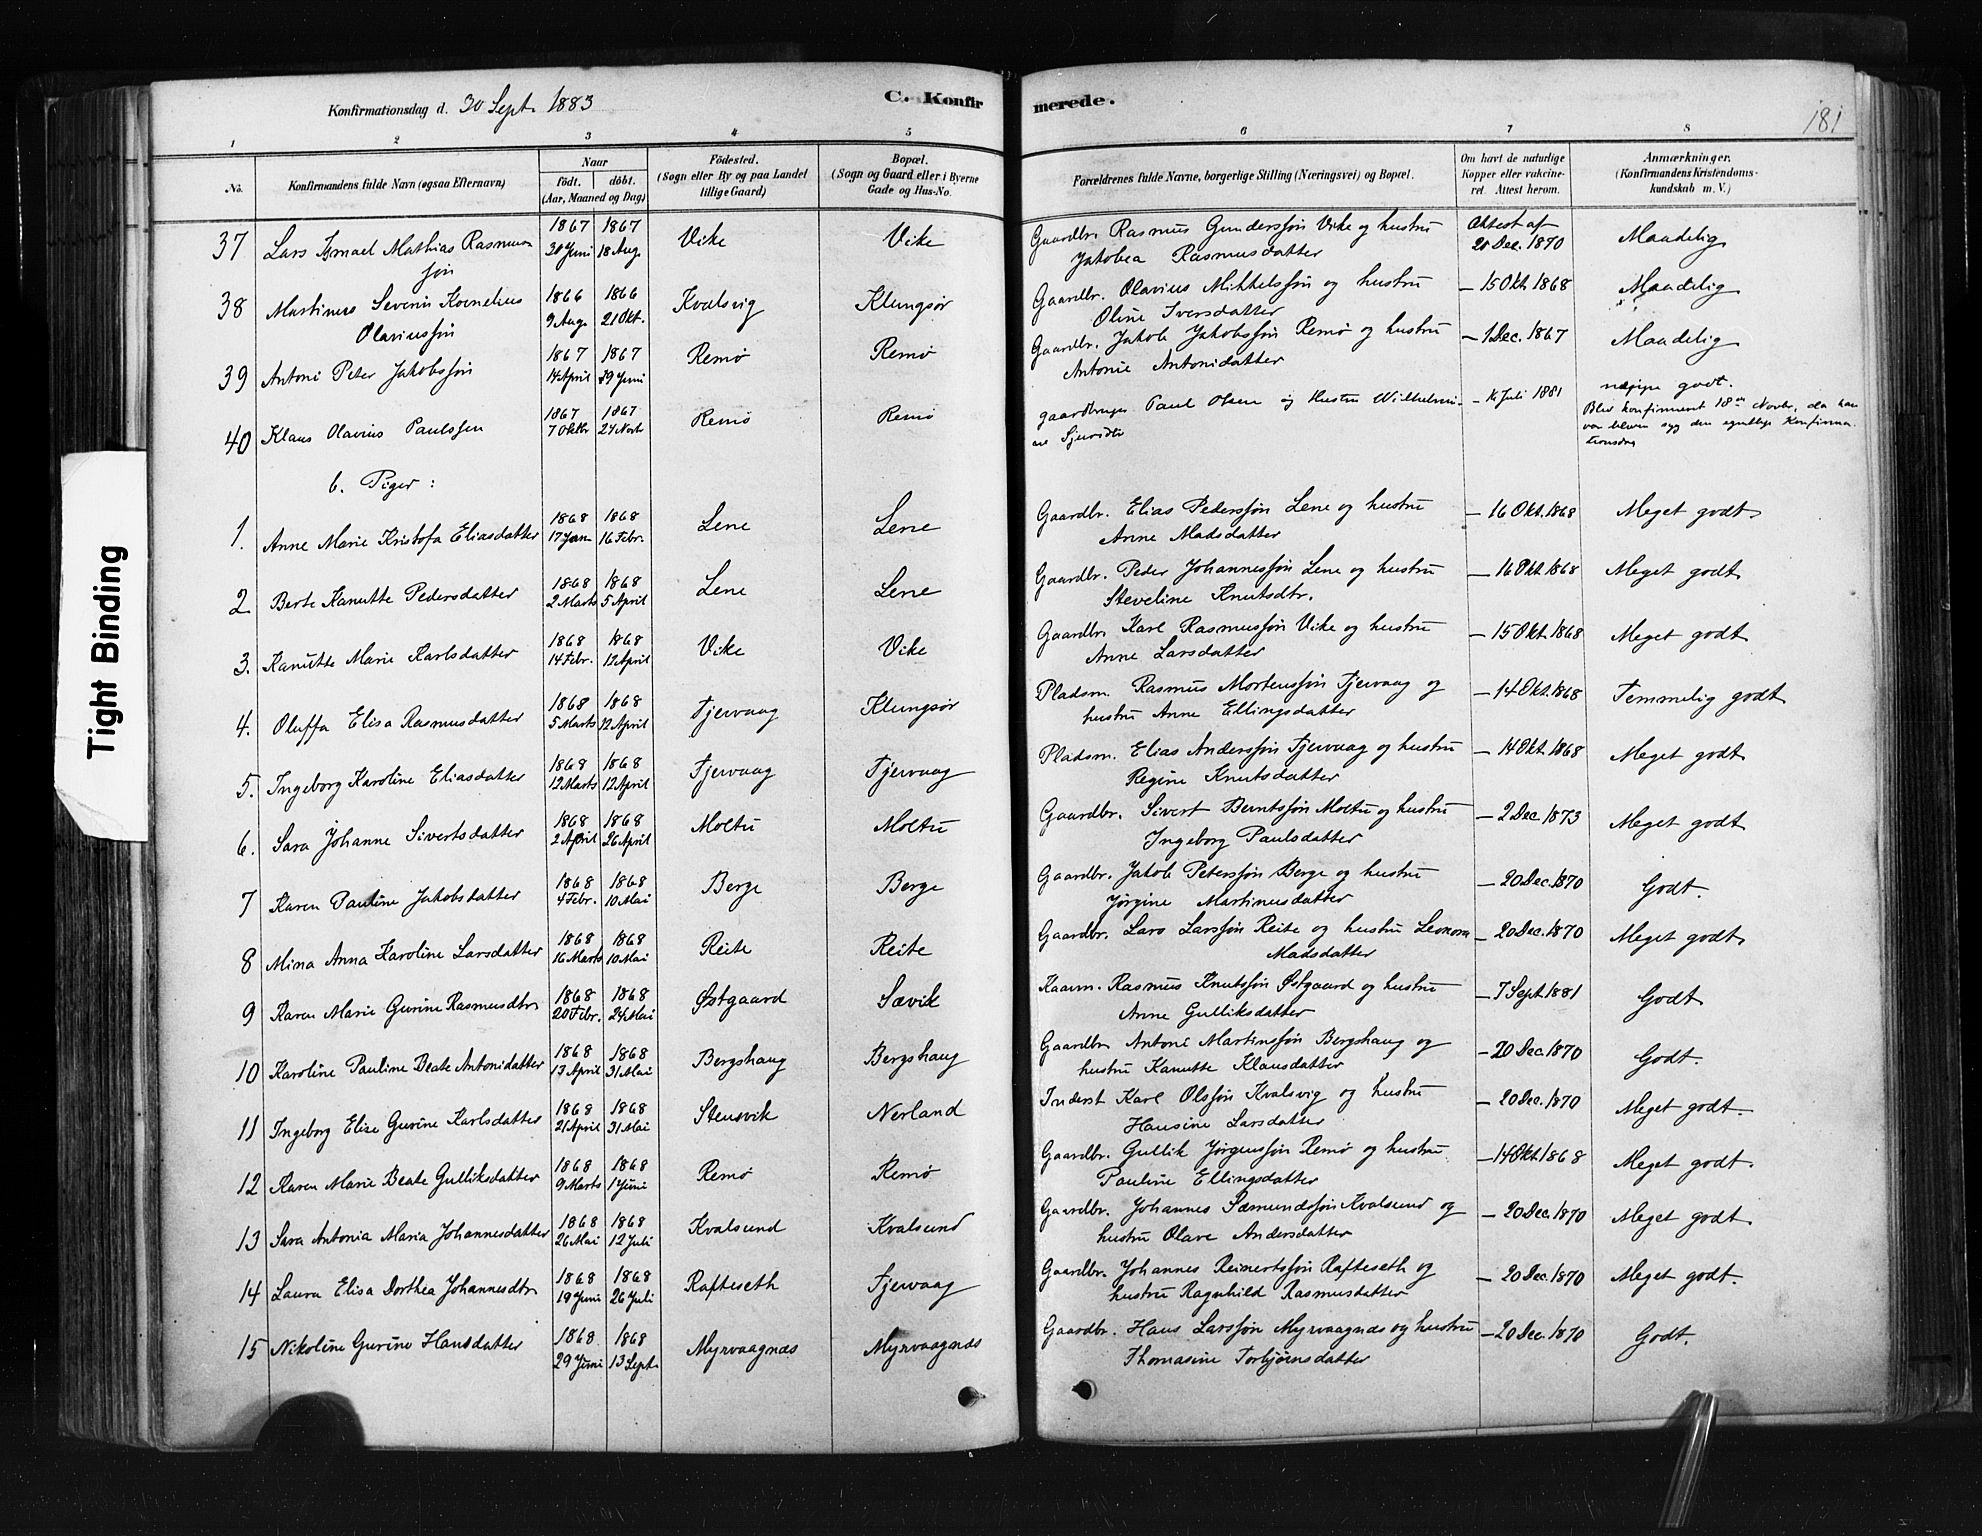 Konfirmationsdag d. 30 Sept. 1883
C. Konfirmerede.
181
1 2 3 4 5 6 7 8
No. Konfirmandens fulde Navn (ogsaa Efternavn) Naar födt. döbt. (Aar, Maaned og Dag) Födested. (Sogn eller By og paa Landet tillige Gaard) Bopæl. (Sogn og Gaard eller i Byerne Gade og Hus-No. Forældrenes fulde Navne, borgerlige Stilling (Næringsvei) og Bopæl. Om havt de naturlige Kopper eller vakcineret. Attest herom. Anmærkninger. (Konfirmandens Kristendomskundskab m. V.)
37 Lars Ismael Mathias Rasmussøn 1867 30 Juni 1867 18 Aug. Vike Vike Gaardbr. Rasmus Gunderssøn Vike og hustru Jakobea Rasmusdatter Attest af 20 Dec. 1870 Maadelig
38 Martinus Severin Kornelius Olaviussøn 1866 9 Aug. 1866 21 Okt. Kvalsvig Klungsør Gaardbr. Olavius Mikkelssøn og hustru Oline Iversdatter — 15 Okt. 1868 Maadelig
39 Antoni Peter Jakobssøn 1867 14 April 1867 19 Juni Remø Remø Gaardbr. Jakob Jakobssøn Remø og hustru Antonie Antonidatter — 1 Dec. 1867 Maadelig
40 Klaus Olavius Paulssen 1867 7 Oktbr 1867 24 Novb Remø Remø gaardbruger Paul Olsen og Hustru Wilhelmine Sjursdtr — Juli 1881 godt. Blev konfirmeret 18de Novbr. da han var bleven syg den egentlige Konfirmationsdag
b. Piger:
1. Anne Marie Kristofa Eliasdatter 1868 17 Jan 1868 16 Febr. Lene Lene Gaardbr. Elias Pederssøn Lene og hustru Anne Madsdatter — 16 Okt. 1868 Meget godt
2 Berte Kanutte Pedersdatter 1868 2 Marts 1868 5 April Lene Lene Gaardbr. Peder Johannessøn Lene og hustru Steveline Knutsdtr. — 16 Okt. 1868 Meget godt
3. Kanutte Marie Karlsdatter 1868 14 Febr. 1868 12 April Vike Vike Gaardbr. Karl Rasmussøn Vike og hustru Anne Larsdatter — 15 Okt. 1868 Meget godt
4. Oluffa Elisa Rasmusdatter 1868 5 Marts 1868 12 April Tjervaag Klungsør Pladsm. Rasmus Mortenssøn Tjervaag og hustru Anne Ellingsdatter — 14 Okt. 1868 Temmelig godt
5. Ingeborg Karoline Eliasdatter 1868 12 Marts 1868 12 April Tjervaag Tjervaag Pladsm. Elias Anderssøn Tjervaag og hustru Regine Knutsdatter — 14 Okt. 1868 Meget godt
6. Sara Johanne Sivertsdatter 1868 2 April 1868 26 April Moltu Moltu Gaardbr. Sivert Berntssøn Moltu og hustru Ingeborg Paulsdatter — 2 Dec. 1873 Meget godt
7 Karen Pauline Jakobsdatter 1868 4 Febr. 1868 10 Mai Berge Berge Gaardbr. Jakob Peterssøn Berge og hustru Jørgine Martinusdatter — 20 Dec. 1870 Godt.
8 Mina Anna Karoline Larsdatter 1868 16 Marts 1868 10 Mai Reite Reite Gaardbr. Lars Larssøn Reite og hustru Leonora Madsdatter — 20 Dec. 1870 Meget godt
9 Karen Marie Gurine Rasmusdtr 1868 20 Febr. 1868 24 Mai Østgaard Sævik Kaarm. Rasmus Knutssøn Østgaard og hustru Anne Gulliksdatter — 7 Sept. 1881 Godt
10 Karoline Pauline Beate Antonidatter 1868 13 April 1868 31 Mai Bergshaug Bergshaug Gaardbr Antoni Martinssøn Bergshaug og hustru Kanutte Klausdatter — 20 Dec. 1870 Godt.
11 Ingeborg Elise Gurine Karlsdatter 1868 21 April 1868 31 Mai Stensvik Nerland Inderst Karl Olssøn Kvalsvig og hustru Hansine Larsdatter — 20 Dec. 1870 Meget godt.
12 Karen Marie Beate Gulliksdatter 1868 9 Marts 1868 1 Juni Remø Remø Gaardbr. Gullik Jørgenssøn Remø og hustru Pauline Ellingsdatter — 14 Okt. 1868 Meget godt.
13 Sara Antonia Maria Johannesdatter 1868 26 Mai 1868 12 Juli Kvalsund Kvalsund Gaardbr. Johannes Sæmundssøn Kvalsund og hustru Olave Andersdatter — 20 Dec. 1870 Meget godt
14 Laura Elisa Dorthea Johannesdtr 1868 19 Juni 1868 26 Juli Rafteseth Tjervaag Gaardbr. Johannes Reinertssøn Rafteseth og hustru Ragnhild Rasmusdatter — 20 Dec. 1870 Meget godt.
15 Nikoline Gurine Hansdatter 1868 29 Juni 1868 13 Sept. Myrvaagnæs Myrvaagnæs Gaardbr. Hans Larssøn Myrvaagnæs og hustru Thomasine Torbjørnsdatter — 20 Dec. 1870 Godt.
Tight Binding